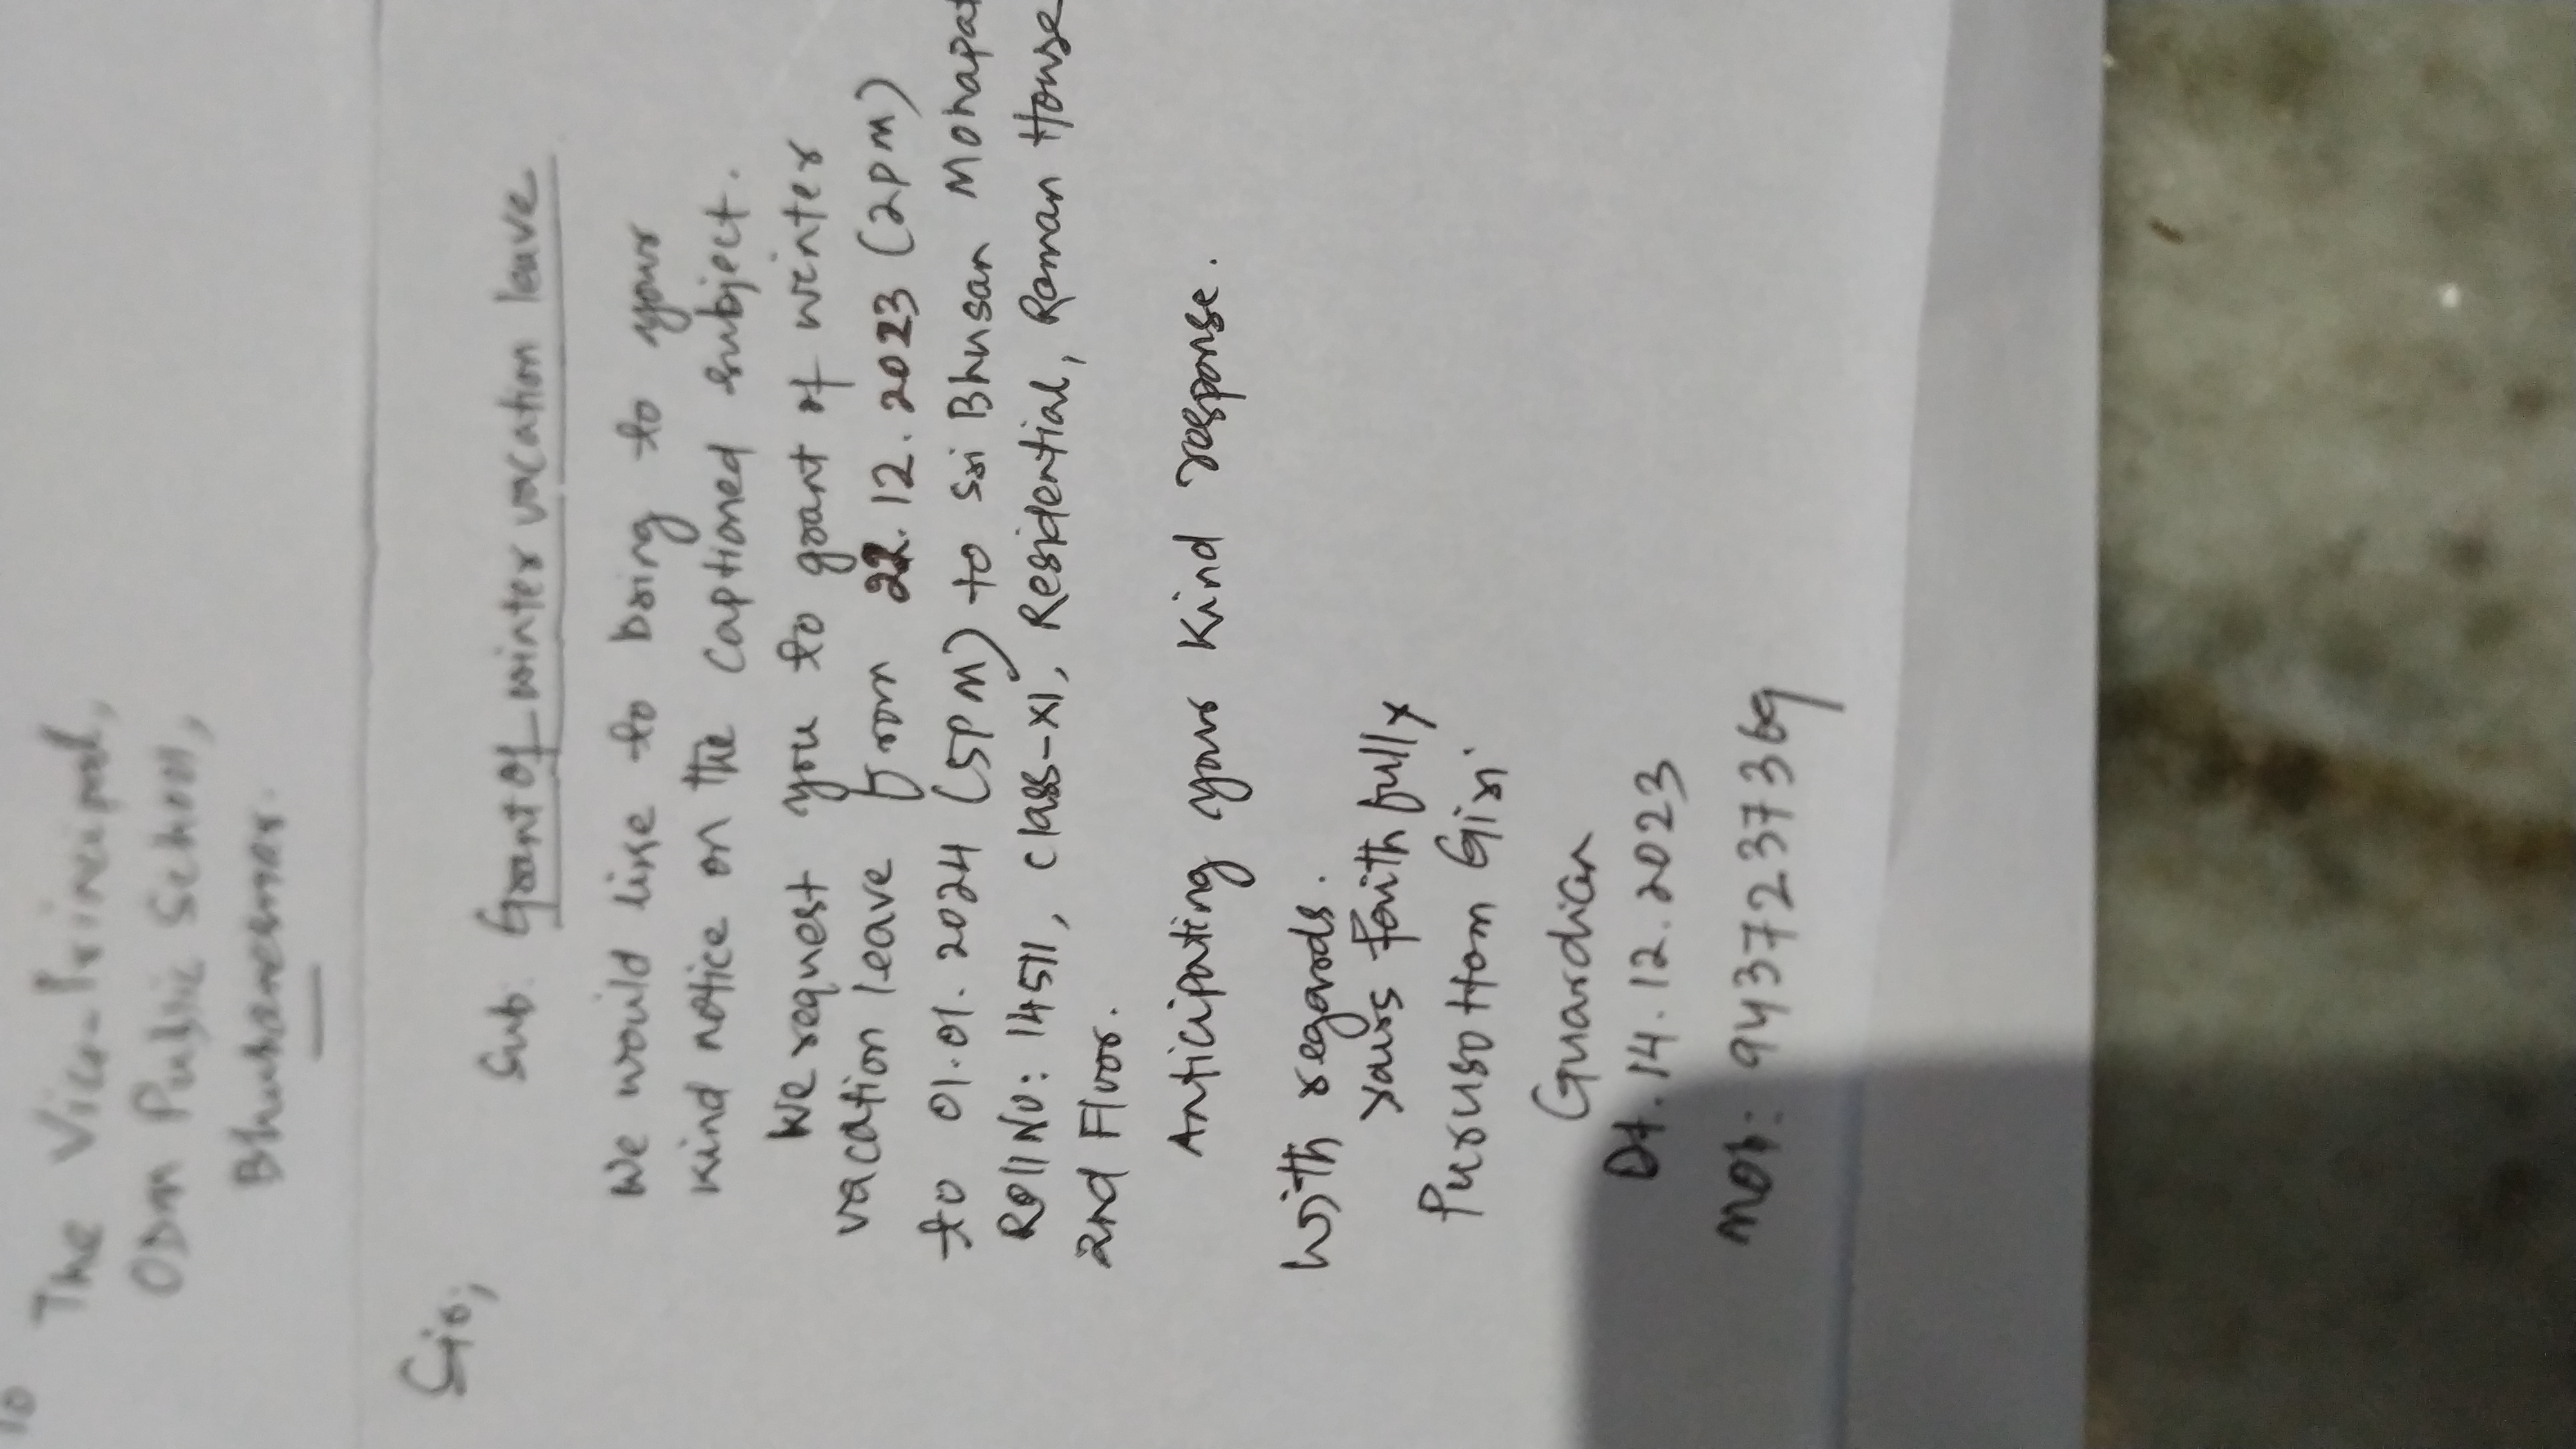 To
The Vice-Principal,
ODM Public School,
Bhubaneswar.
Sir,
Sub: Grant of winter vacation leave
We would like to bring to your
kind notice on the captioned subject.
We request you to grant of winter
vacation leave from 22.12.2023 (2pm)
to 01.01.2024 (5pm) to Sri Bhusan Mohapat
Roll No: 14511, class-XI, Residential, Raman House
2nd Floor.
Anticipating your kind response.
With regards.
Yours faithfully
Purusottam Giri
Guardian
Dt. 14.12.2023
Mob: 9437237369